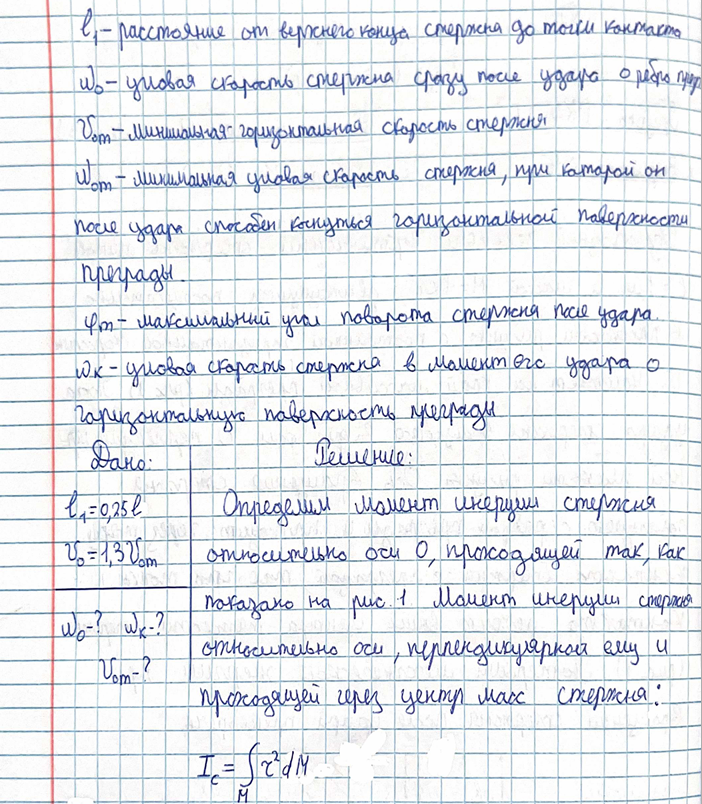 l₁ - расстояние от верхнего конца стержна до точки контакта
ω₀ - угловая скорость стержна сразу после удара о ребро прег
V₀ₘ - минимальная горизонтальная скорость стержня
ω₀ₘ - минимальная угловая скорость стержня, при которой он
после удара способен коснуться горизонтальной поверхности
преграды.
φₘ - максимальный угол поворота стержня после удара.
ωк - угловая скорость стержна в момент его удара о
горизонтальную поверхность преграды
Дано: Решение:
l₁=0,25l Определим момент инерции стержня
V₀=1,3V₀ₘ относительно оси O, проходящей так, как
показано на рис. 1 Момент инерции стержня
ω₀-? ωк-? относительно оси, перпендикулярной ему и
V₀ₘ-? проходящей через центр масс стержна:
I_c = ∫_M r² dM